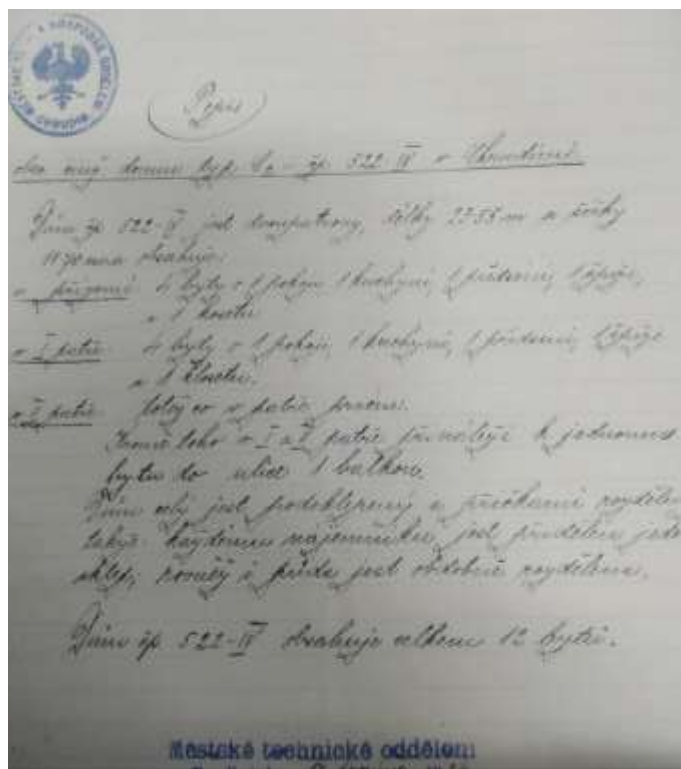 Popis
domu typ čp. 522-IV v Chrudimi.
Dům čp 522-IV jest dvoupatrový, délky 23·55 m a šířky
obsahuje:
v přízemí: 4 byty o 1 pokoji, 1 kuchyni, 1 předsíni, 1 spíže,
a 1 klosetu
v I patře 4 byty o 1 pokoji, 1 kuchyni, 1 předsíni, 1 spíže
a 1 klosetu.
v II patře totéž co v patře prvém.
Kromě toho v I a II patře přináleží k jednomu
bytu do ulice 1 balkon.
Dům celý jest podsklepený a příčkami rozdělen
takže každému nájemníku jest přidělen jeden
sklep, rovněž i půda jest obdobně rozdělena.
Dům čp 522-IV obsahuje celkem 12 bytů.
Městské technické oddělení